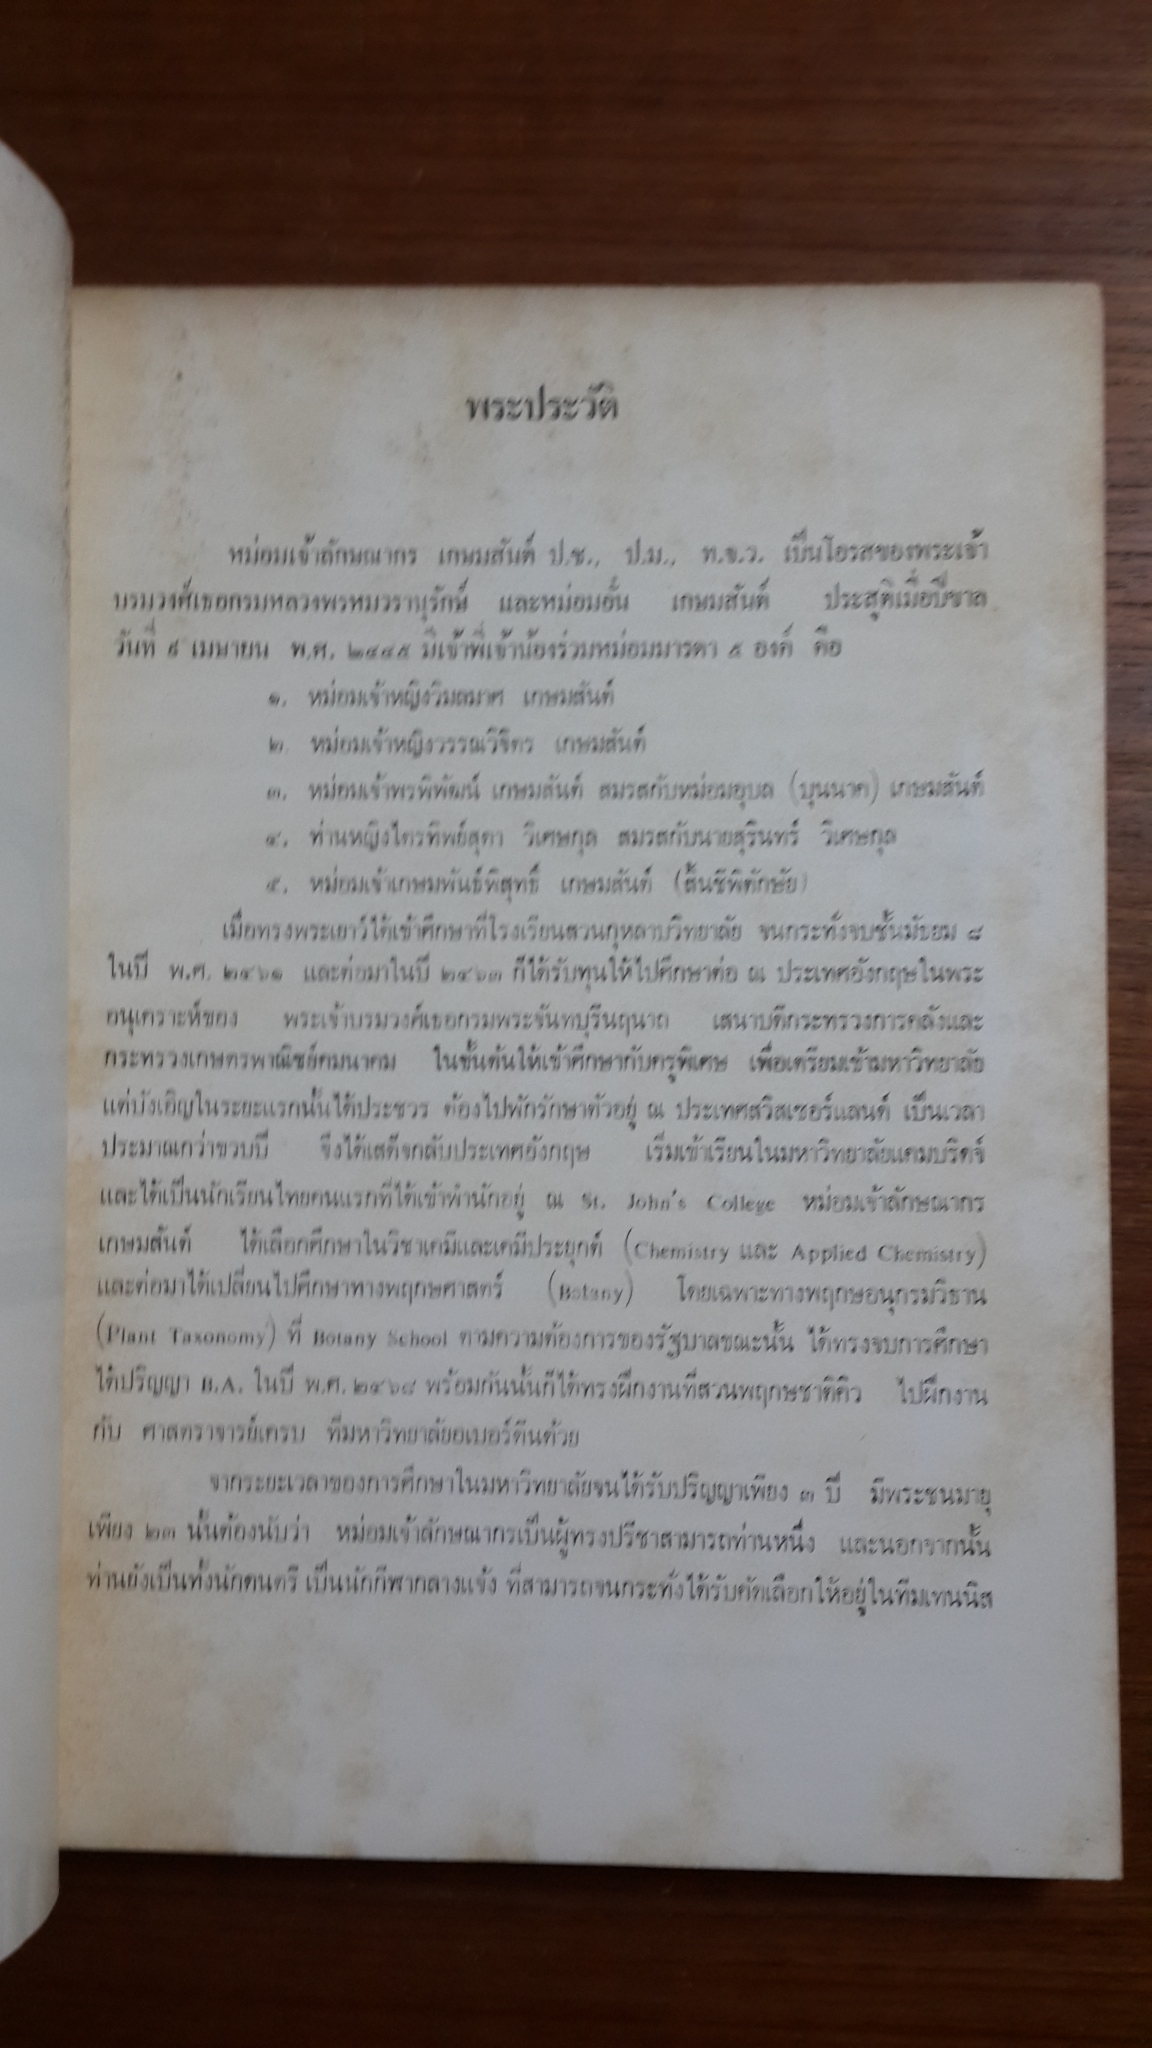 พระประวัติ
หม่อมเจ้าลักษณากร เกษมสันต์ ป.ช., ป.ม., ท.จ.ว. เป็นโอรสของพระเจ้า
บรมวงศ์เธอกรมหลวงพรหมวรานุรักษ์ และหม่อมอั้น เกษมสันต์ ประสูติเมื่อปีขาล
วันที่ ๘ เมษายน พ.ศ. ๒๔๔๕ มีเจ้าพี่เจ้าน้องร่วมหม่อมมารดา ๕ องค์ คือ
๑. หม่อมเจ้าหญิงวิมลมาศ เกษมสันต์
๒. หม่อมเจ้าหญิงวรรณวิจิตร เกษมสันต์
๓. หม่อมเจ้าพรพิพัฒน์ เกษมสันต์ สมรสกับหม่อมอุบล (บุนนาค) เกษมสันต์
๔. ท่านหญิงไตรทิพย์สุดา วิเศษกุล สมรสกับนายสุรินทร์ วิเศษกุล
๕. หม่อมเจ้าเกษมพันธ์พิสุทธิ์ เกษมสันต์ (สิ้นชีพิตักษัย)
เมื่อทรงพระเยาว์ได้เข้าศึกษาที่โรงเรียนสวนกุหลาบวิทยาลัย จนกระทั่งจบชั้นมัธยม ๘
ในปี พ.ศ. ๒๔๖๑ และต่อมาในปี ๒๔๖๓ ก็ได้รับทุนให้ไปศึกษาต่อ ณ ประเทศอังกฤษในพระ
อนุเคราะห์ของ พระเจ้าบรมวงศ์เธอกรมพระจันทบุรีนฤนาถ เสนาบดีกระทรวงการคลังและ
กระทรวงเกษตรพาณิชย์คมนาคม ในชั้นต้นให้เข้าศึกษากับครูพิเศษ เพื่อเตรียมเข้ามหาวิทยาลัย
แต่บังเอิญในระยะแรกนั้นได้ประชวร ต้องไปพักรักษาตัวอยู่ ณ ประเทศสวิสเซอร์แลนด์ เป็นเวลา
ประมาณกว่าขวบปี จึงได้เสด็จกลับประเทศอังกฤษ เริ่มเข้าเรียนในมหาวิทยาลัยแคมบริดจ์
และได้เป็นนักเรียนไทยคนแรกที่ได้เข้าพำนักอยู่ ณ St. John's College หม่อมเจ้าลักษณากร
เกษมสันต์ ได้เลือกศึกษาในวิชาเคมีและเคมีประยุกต์ (Chemistry และ Applied Chemistry)
และต่อมาได้เปลี่ยนไปศึกษาทางพฤกษศาสตร์ (Botany) โดยเฉพาะทางพฤกษอนุกรมวิธาน
(Plant Taxonomy) ที่ Botany School ตามความต้องการของรัฐบาลขณะนั้น ได้ทรงจบการศึกษา
ได้ปริญญา B.A. ในปี พ.ศ. ๒๔๖๘ พร้อมกันนั้นก็ได้ทรงฝึกงานที่สวนพฤกษชาติคิว ไปฝึกงาน
กับ ศาสตราจารย์เครบ ที่มหาวิทยาลัยอเบอร์ดีนด้วย
จากระยะเวลาของการศึกษาในมหาวิทยาลัยจนได้รับปริญญาเพียง ๓ ปี มีพระชนมายุ
เพียง ๒๓ นั้นต้องนับว่า หม่อมเจ้าลักษณากรเป็นผู้ทรงปรีชาสามารถท่านหนึ่ง และนอกจากนั้น
ท่านยังเป็นทั้งนักดนตรี เป็นนักกีฬากลางแจ้ง ที่สามารถจนกระทั่งได้รับคัดเลือกให้อยู่ในทีมเทนนิส